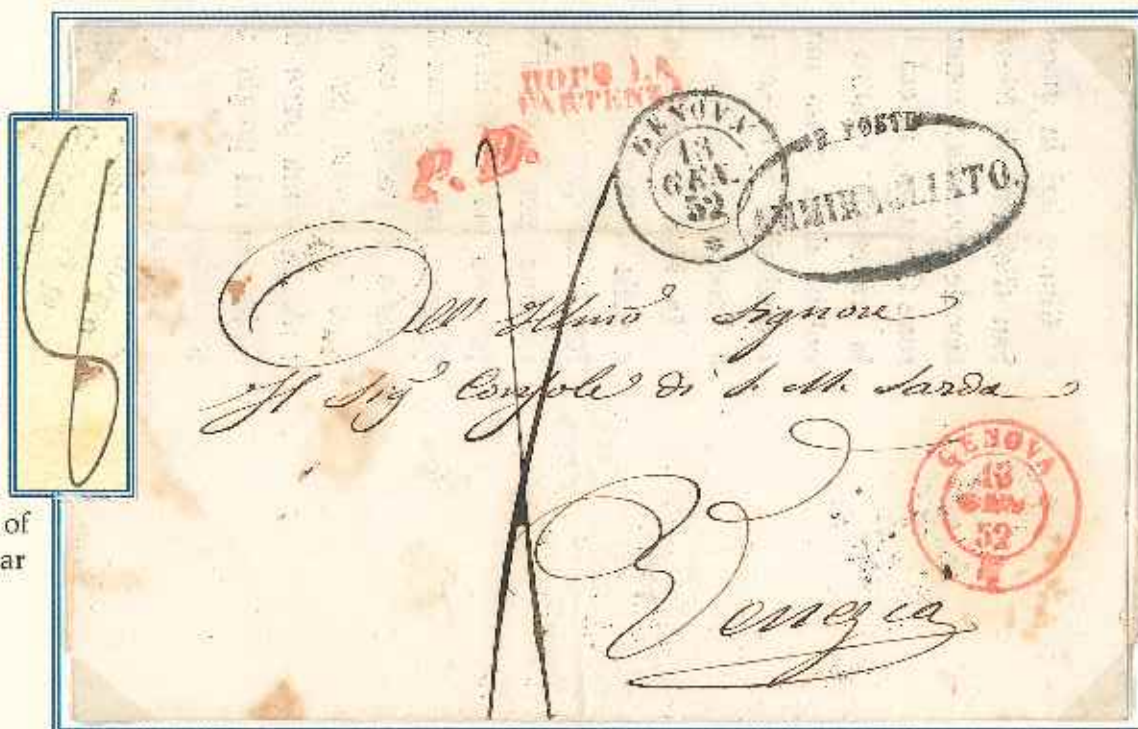 DOPO LA
PARTENZA
P. D.
GENOVA
13
GEN.
52
R. POSTE
AMMIRAGLIATO.
All' Illmo Signore
Il Sig Console di S. M. Sarda
Venezia
GENOVA
13
GEN
52
of
ar